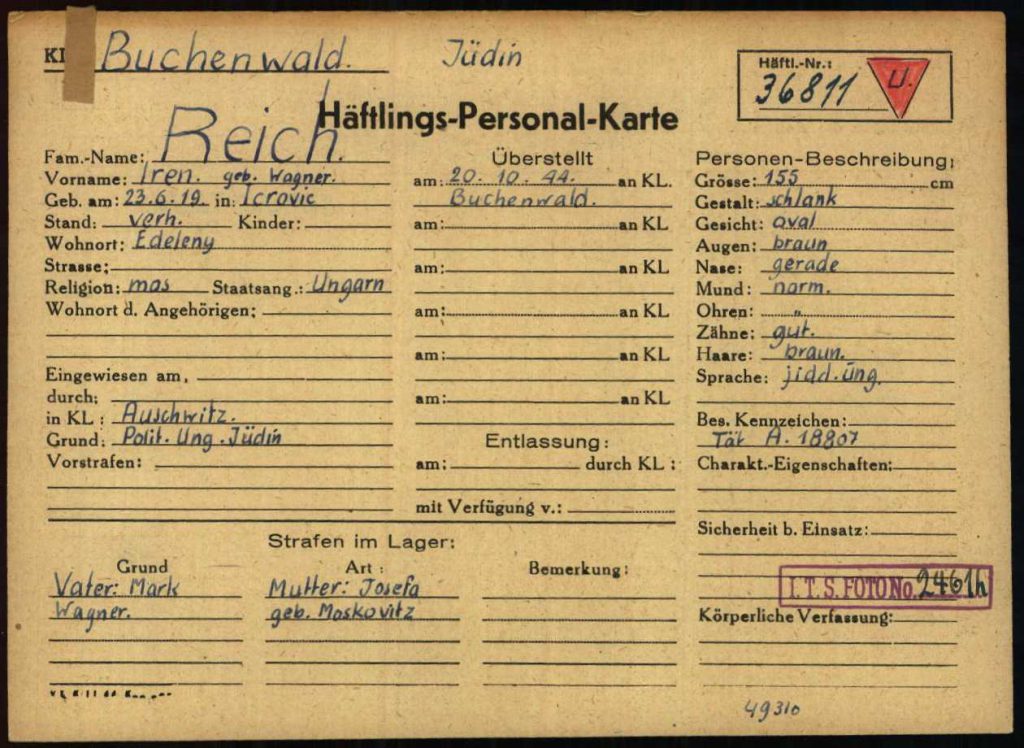 KL Buchenwald. Jüdin
Häftl.-Nr.:
36811 U.
Häftlings-Personal-Karte
Fam.-Name: Reich.
Vorname: Iren. geb. Wagner.
Geb. am: 23.6.19. in: Icrovic
Stand: verh. Kinder:
Wohnort: Edeleny
Strasse:
Religion: mos Staatsang.: Ungarn
Wohnort d. Angehörigen:
Eingewiesen am,
durch:
in KL: Auschwitz.
Grund: Polit. Ung. Jüdin
Vorstrafen:
Überstellt
am: 20. 10. 44. an KL.
Buchenwald.
am: an KL
am: an KL
am: an KL
am: an KL
am: an KL
Entlassung:
am: durch KL:
mit Verfügung v.:
Personen-Beschreibung:
Grösse: 155 cm
Gestalt: schlank
Gesicht: oval
Augen: braun
Nase: gerade
Mund: norm.
Ohren: "
Zähne: gut.
Haare: braun.
Sprache: jidd. üng.
Bes. Kennzeichen:
Tät A. 18807
Charakt.-Eigenschaften:
Sicherheit b. Einsatz:
I. T. S. FOTO No. 2461h
Körperliche Verfassung:
Strafen im Lager:
Grund Art: Bemerkung:
Vater: Mark Mutter: Josefa
Wagner. geb. Moskovitz
49310